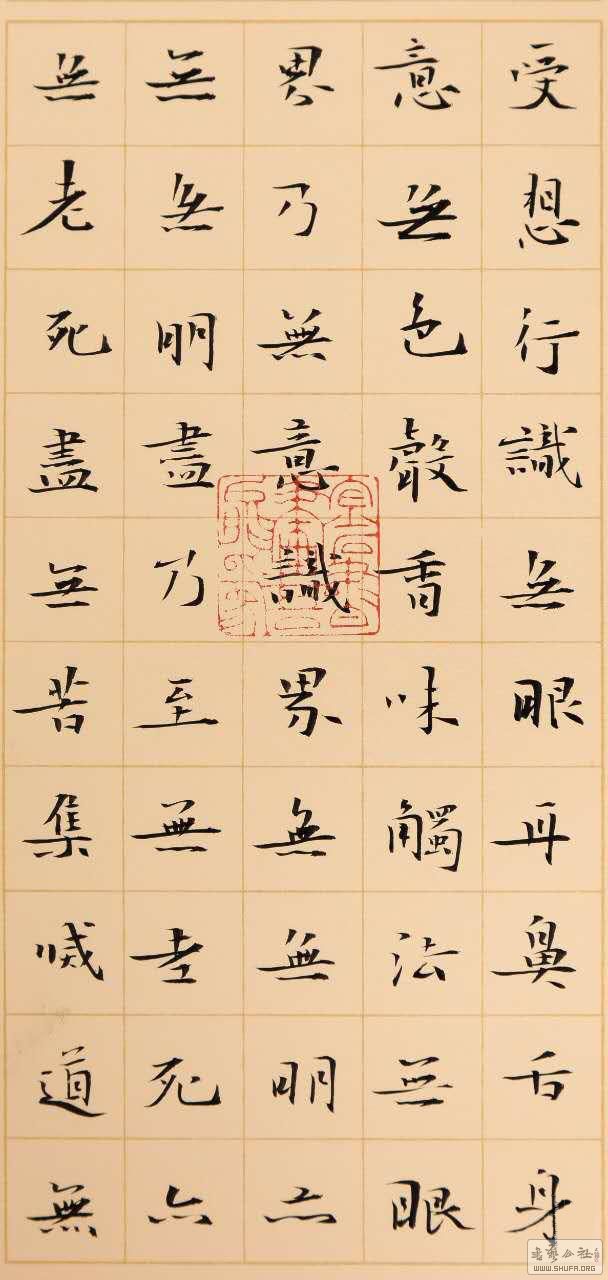 受想行識無眼耳鼻舌身
意無色聲香味觸法無眼
界乃無意識界無無明亦
無無明盡乃至無老死亦
無老死盡無苦集滅道無
WWW.SHUFA.ORG